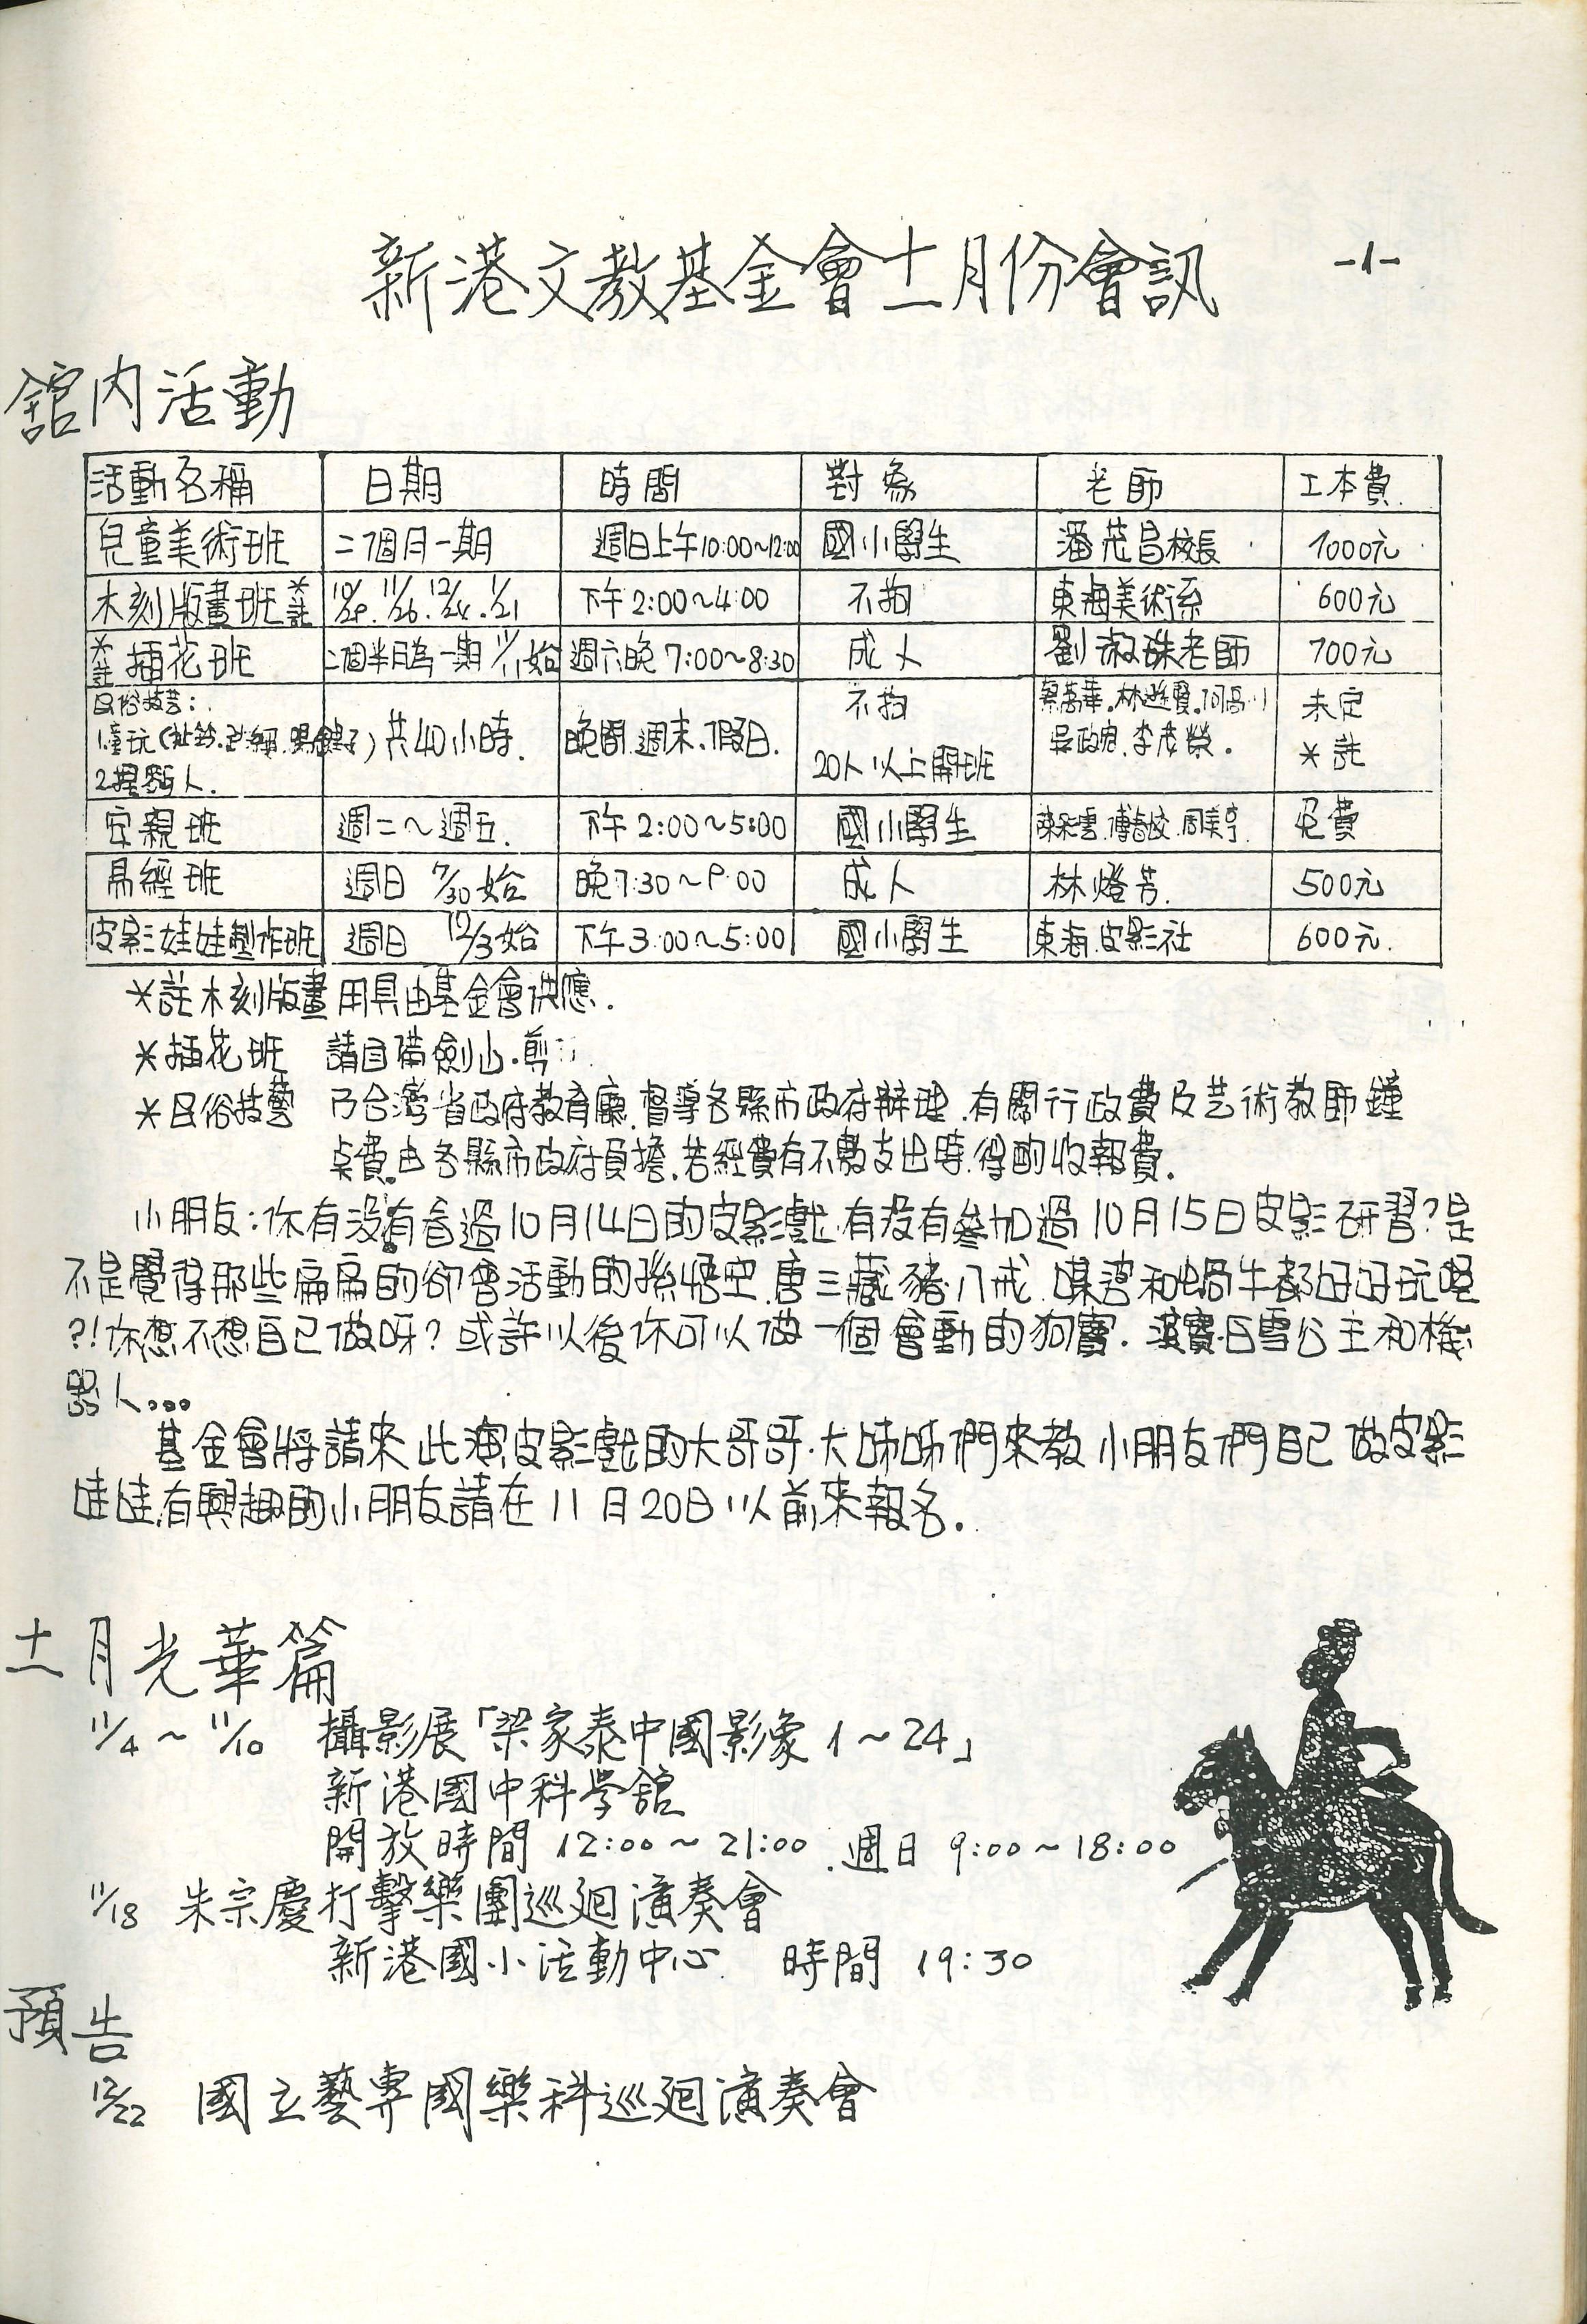 新港文教基金會十一月份會訊 -1-
舘内活動
活動名稱 日期 時間 對象 老師 工本費
兒童美術班 二個月一期 週日上午10:00~12:00 國小學生 潘茂昌校長 1000元
木刻版畫班*註 10/29.11/26.12/24.1/21 下午2:00~4:00 不拘 東海美術系 600元
*註插花班 二個半月為一期 11/11始 週六晚7:00~8:30 成人 劉淑珠老師 700元
民俗技芸: 不拘 林遊賢 未定
1童玩(扯鈴.跳繩.踢毽子) 共40小時. 晚間.週末.假日. 吳政宏.李茂榮. *註
2捏麵人. 20人以上開班
安親班 週二~週五. 下午2:00~5:00 國小學生 陳彩雲 免費
易經班 週日 7/30始 晚7:30~9:00 成人 林燈芳. 500元
皮影娃娃製作班 週日 12/3始 下午3:00~5:00 國小學生 東海.皮影社 600元.
*註木刻版畫 用具由基金會供應.
*插花班 請自備劍山.剪
*民俗技藝 乃台灣省政府教育廳.督導各縣市政府辦理.有關行政費及芸術教師鐘
點費.由各縣市政府負擔.若經費有不敷支出時.得酌收報費.
小朋友:你有没有看過10月14日的皮影戲.有没有參加過10月15日皮影研習?是
不是覺得那些扁扁的卻會活動的孫悟空.唐三藏.豬八戒.螵婆和蝸牛都好好玩喔
?!你想不想自己做呀?或許以後你可以做一個會動的狗寶.漢寶.白雪公主和機
器人...
基金會將請來此演皮影戲的大哥哥.大姊姊們來教小朋友們自己做皮影
娃娃.有興趣的小朋友請在11月20日以前來報名.
十一月光華篇
11/4~11/10 攝影展「梁家泰中國影象1~24」
新港國中科學舘
開放時間 12:00~21:00.週日 9:00~18:00
11/18 朱宗慶打擊樂團巡迴演奏會
新港國小活動中心 時間 19:30
預告
12/22 國立藝專國樂科巡迴演奏會